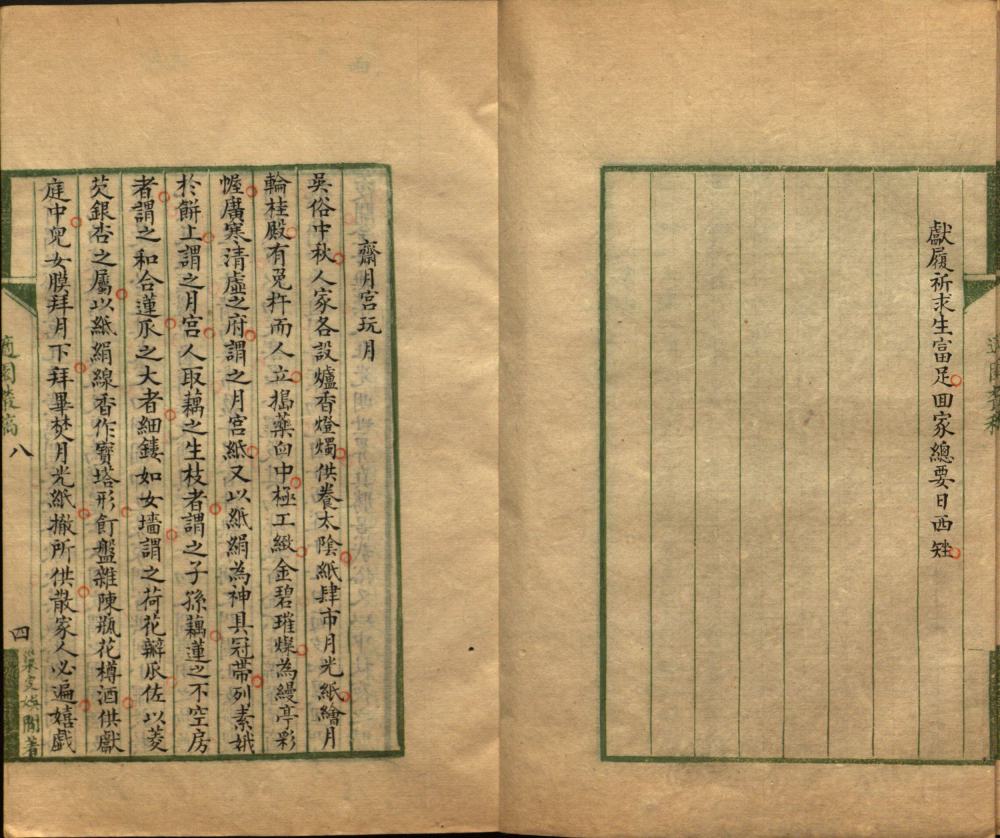 獻履祈求生富足回家總要日西矬
齋月宮玩月
吳俗中秋人家各設爐香燈燭供養太陰紙肆市月光紙繪月
輪桂殿有兔杵而人立搗藥臼中極工緻金碧璀燦為縵亭彩
幄廣寒清虛之府謂之月宮紙又以紙絹為神具冠帶列素娥
於餅上謂之月宮人取藕之生枝者謂之子孫藕蓮之不空房
者謂之和合蓮瓜之大者細鏤如女墻謂之荷花瓣瓜佐以菱
芡銀杏之屬以紙絹線香作寶塔形飣盤雜陳瓶花樽酒供獻
庭中兒女膜拜月下拜畢焚月光紙撤所供散家人必遍嬉戲
八
四